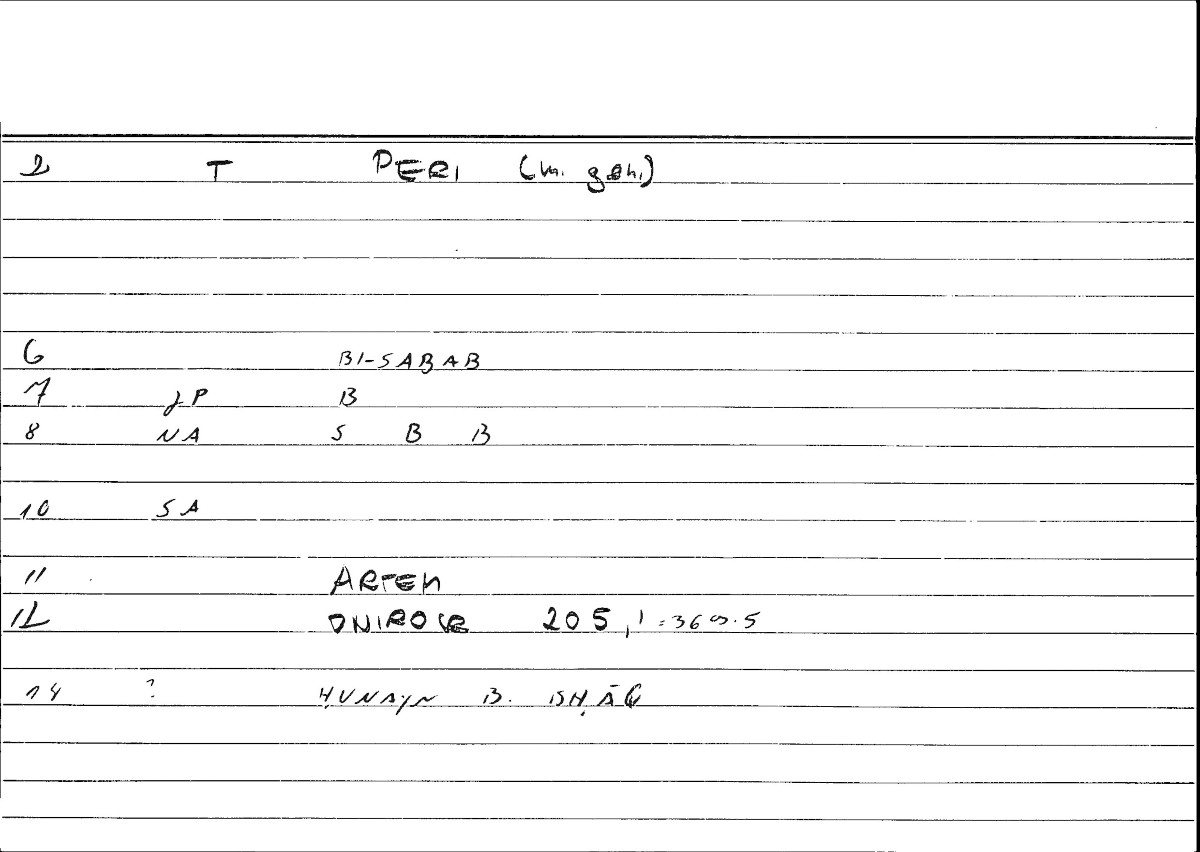 2 T PERI (m. gen.)
6 BI-SABAB
7 JP B
8 NA S B B
10 SA
11 ARTEM
12 ONIROCR 205,1 = 369.5
14 ? ḤUNAYN B. ISḤĀQ